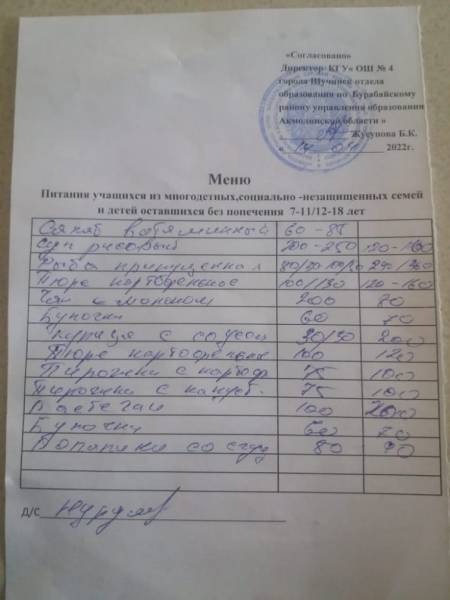 «Согласовано»
Директор КГУ« ОШ № 4
города Щучинск отдела
образования по Бурабайскому
району управления образования
Акмолинской области »
Жусупова Б.К.
« 14 2022г.
Меню
Питания учащихся из многодетных,социально -незащищенных семей
и детей оставшихся без попечения 7-11/12-18 лет
Салат витаминный 60 - 85
Суп рисовый 200 - 250
Рыба припущенная
Пюре картофельное
Чай с молоком 200 70
Булочки 60 70
Курица с соусом 200
Пюре картофельные 100 120
Пирожки с картоф 75 100
Пирожки с капуст. 75 100
100 200
Булочки 60 70
со сгущ 80 90
д/с